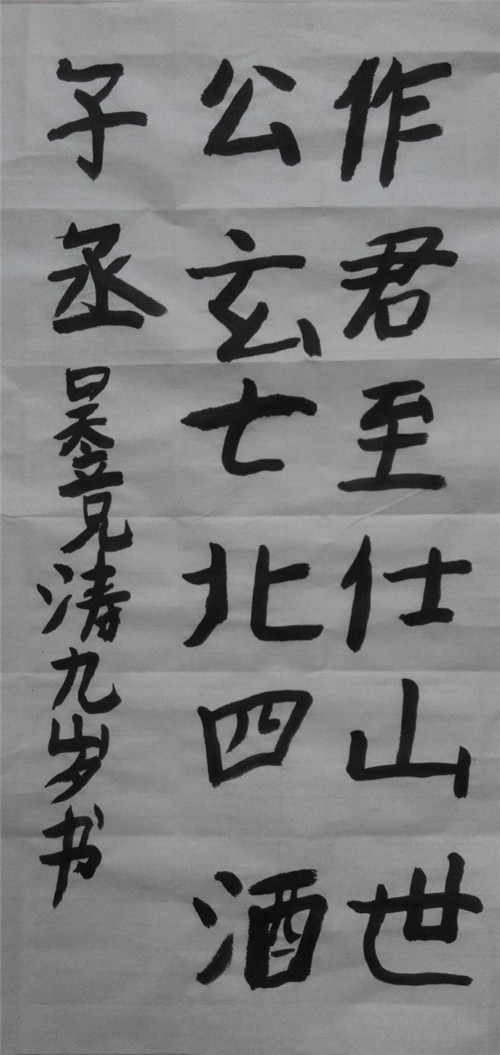 作君至仕山世
公玄七北四酒
子丞
吴竞涛九岁书